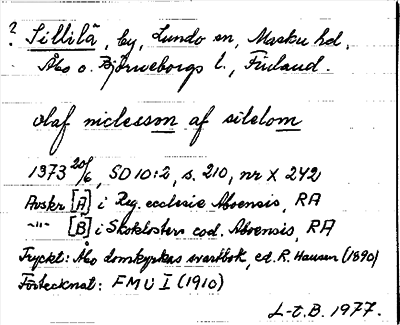 ? Sillilä, by, Lundo sn, Masku hd,
Åbo o. Björneborgs l., Finland.
olaf niclesson af silelom
1373 20/6, SD 10:2, s. 210, nr X 242
Avskr [A] i Reg. ecclesie Aboensis, RA
-"- [B] i Skoklosters cod. Aboensis, RA
Tryckt: Åbo domkyrkas svartbok, ed. R. Hausen (1890)
Förtecknat: FMU I (1910)
L-t. B. 1977.